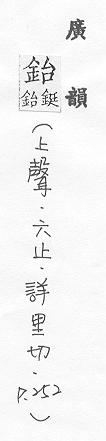 廣韻
鈶
鋋鈶
(上聲．六止．詳里切．P.252)